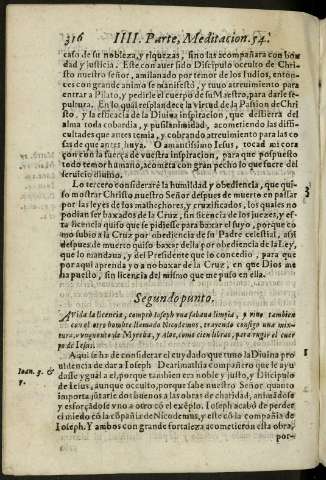 316 IIII. Parte, Meditacion. 54.
caso de su nobleza, y riquezas, sino las acompañara con bon
dad y justicia. Este con aver sido Discipulo oculto de Chri-
sto nuestro señor, amilanado por temor de los Iudios, enton-
ces con grande animo se manifestó, y tuvo atrevimiento para
entrar a Pilato, y pedirle el cuerpo de su Maestro, para darle se-
pultura. En lo qual resplandece la virtud de la Passion de Chri
sto, y la efficacia de la Divina inspiracion, que destierra del
alma toda cobardia, y pusilanimidad, acometiendo las diffi-
cultades que antes temia, y cobrando atrevimiento para las co
sas de que antes huya. O amantissimo Iesus, tocad mi cora
çon con la fuerça de vuestra inspiracion, para que pospuesto
todo temor humano, acometa con gran pecho lo que fuere del
servicio divino.
Lo tercero considerare la humildad y obediencia, que qui-
so mostrar Christo nuestro Señor despues de muerto en passar
por las leyes de los malhechores, y cruzificados, los quales no
podian ser baxados de la Cruz, sin licencia de los juezes, y es-
ta licencia quiso que se pidiesse para baxar el suyo, porque co
mo subio a la Cruz por obediencia de su Padre celestial, assi
despues de muerto quiso baxar della por obediencia de la Ley,
que lo mandava, y del Presidente que lo concedio, para que
por aqui aprenda yo a no baxar de la Cruz, en que Dios me
ha puesto, sin licencia del mismo que me puso en ella.
Segundo punto.
AVida la licencia, compró Ioseph una sabana limpia, y vino tambien
con el otro hombre llamado Nicodemus, trayendo consigo una mix-
tura, o unguento de Myrrha, y Aloe, como cien libras, para ungir el cuer
po de Iesus.
Ioan. 3. &
7.
Aqui se ha de considerar el cuydado que tuvo la Divina pro
videncia de dar a Ioseph Dearimathia compañero que le ayu
dasse ygual a el, porque tambien era noble y justo, y Discipulo
de Iesus, aunque occulto, porque sabe nuestro Señor quanto
importa, jũtar se dos buenos a las obras de charidad, animãdose
y esforçãdose uno a otro cõ el exẽplo. Ioseph acabó de perder
el miedo cõ la cõpañia de Nicodemus, y este cõ la compañia de
Ioseph. Y ambos con grande fortaleza acometieron esta obra,
por-